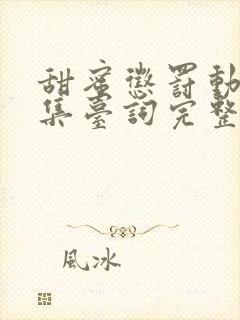 甜蜜懲罰動
集臺詞完整
風冰